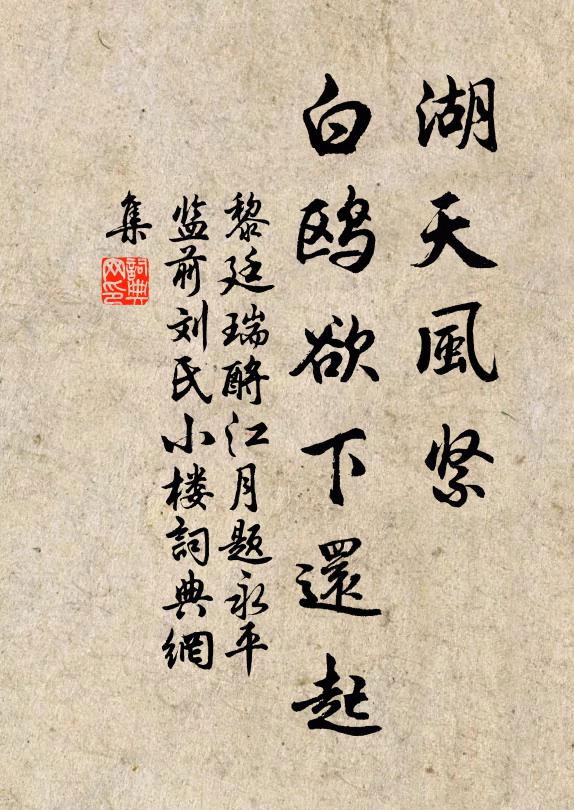 湖天風緊
白鸥欲下還起
黎廷瑞酹江月题永平
监前刘氏小楼詞典網
集
詞典
网印